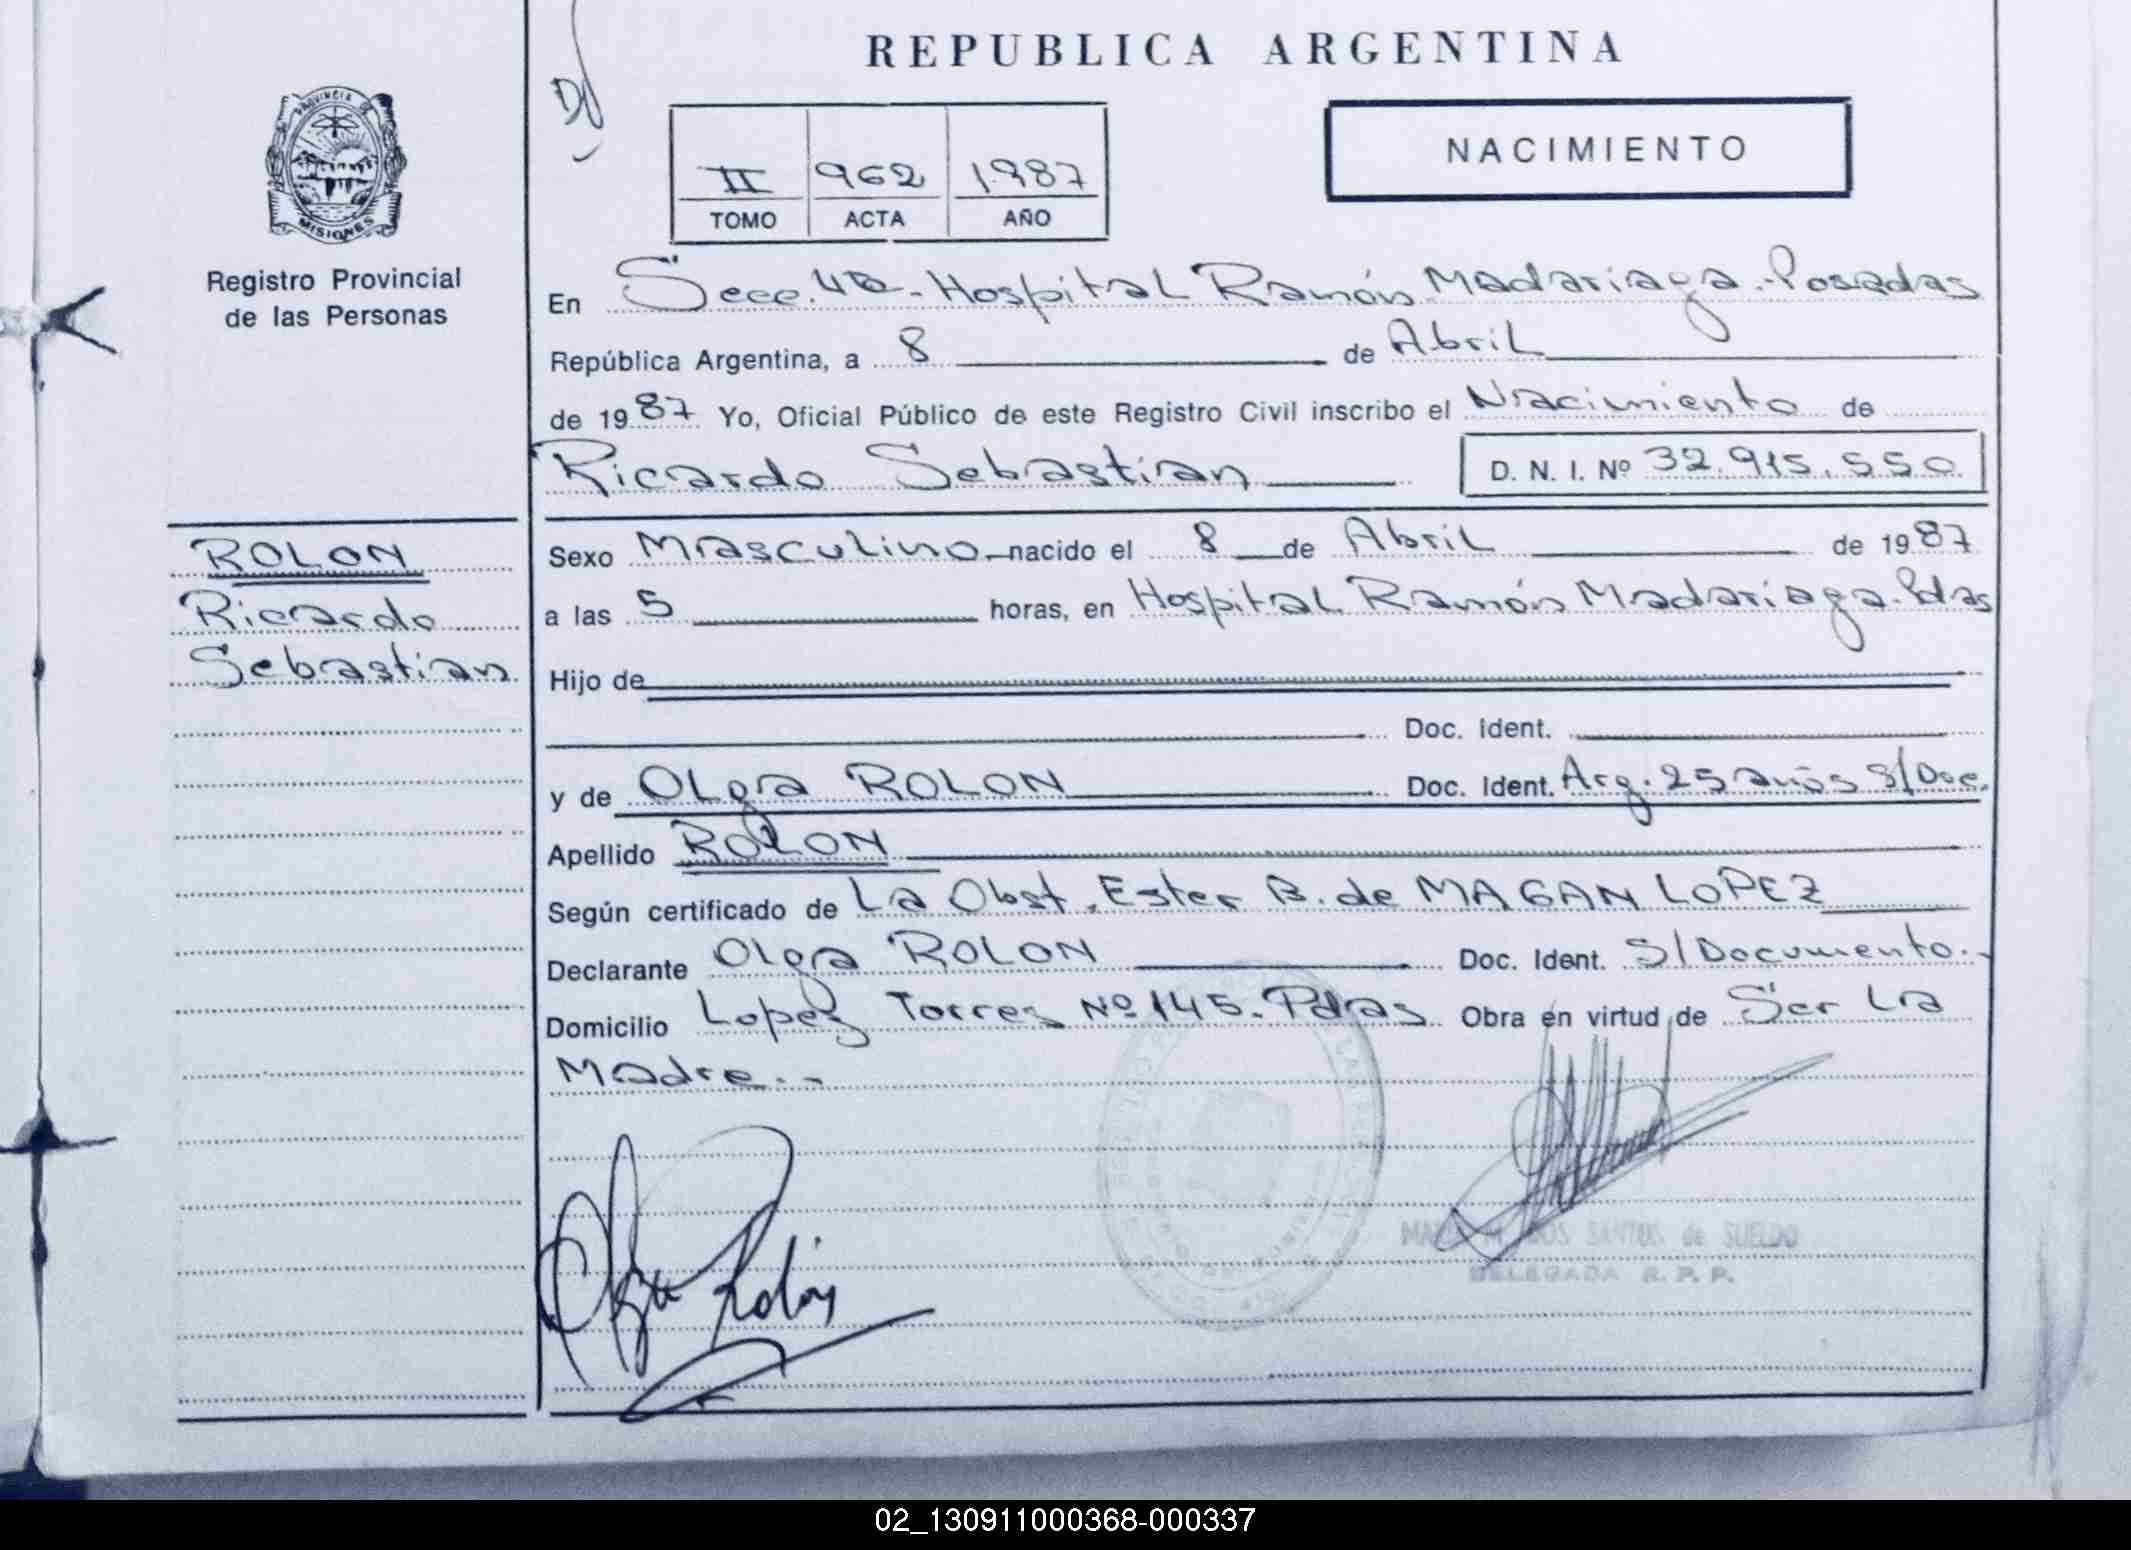 REPUBLICA ARGENTINA
NACIMIENTO
II 962 1987
TOMO ACTA AÑO
PROVINCIA DE
MISIONES
Registro Provincial
de las Personas
En Secc. 4a - Hospital Ramón Madariaga - Posadas
República Argentina, a 8 de Abril
de 1987 Yo, Oficial Público de este Registro Civil inscribo el Nacimiento de
Ricardo Sebastian D. N. I. Nº 32.915.550
ROLON
Ricardo
Sebastian
Sexo Masculino nacido el 8 de Abril de 1987
a las 5 horas, en Hospital Ramón Madariaga. Pdas
Hijo de
Doc. Ident.
y de Olga ROLON Doc. Ident. Arg. 25 años S/Doc.
Apellido ROLON
Según certificado de La Obst. Ester B. de MAGAN LOPEZ
Declarante Olga ROLON Doc. Ident. S/Documento.-
Domicilio Lopez Torres Nº 145. Pdas Obra en virtud de Ser La
Madre.-
Olga Rolón
M. DOS SANTOS de SUELDO
DELEGADA R. P. P.
02_130911000368-000337